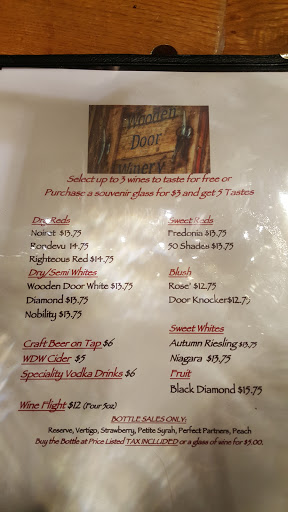 Wooden
Door
Winery
Select up to 3 wines to taste for free or
Purchase a souvenir glass for $3 and get 5 Tastes
Dry Reds
Noiret $13.75
Rondevu 14.75
Righteous Red $14.75
Dry/Semi Whites
Wooden Door White $13.75
Diamond $13.75
Nobility $13.75
Craft Beer on Tap $6
WDW Cider $5
Speciality Vodka Drinks $6
Wine Flight $12 (Four 5oz)
Sweet Reds
Fredonia $13.75
50 Shades $13.75
Blush
Rose' $12.75
Door Knocker $12.75
Sweet Whites
Autumn Riesling $13.75
Niagara $13.75
Fruit
Black Diamond $15.75
BOTTLE SALES ONLY:
Reserve, Vertigo, Strawberry, Petite Syrah, Perfect Partners, Peach
Buy the Bottle at Price Listed TAX INCLUDED or a glass of wine for $5.00.